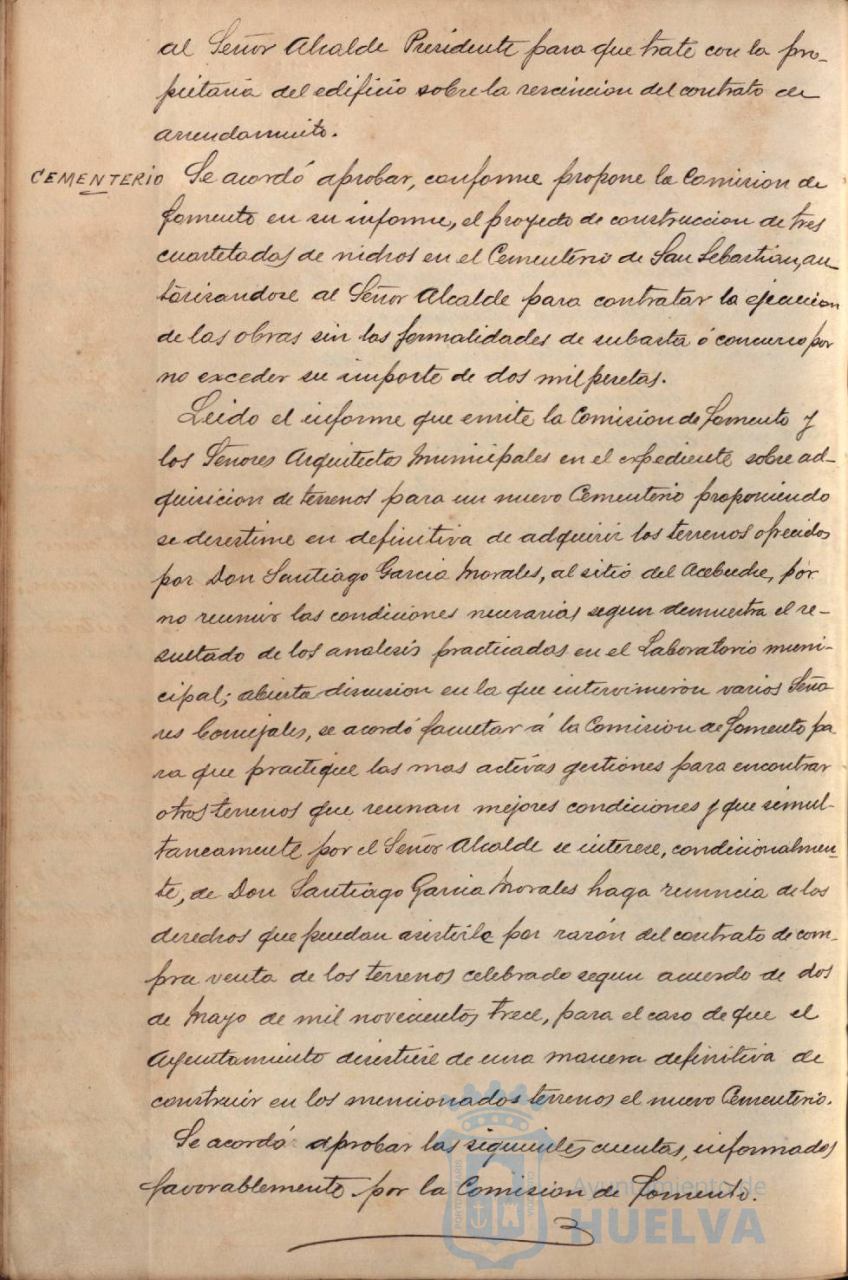 al Señor Alcalde Presidente para que trate con la pro-
pietaria del edificio sobre la rescincion del contrato de
arrendamiento.
CEMENTERIO
Se acordó aprobar, conforme propone la Comision de
Fomento en su informe, el proyecto de construccion de tres
cuarteladas de nichos en el Cementerio de San Sebastian, au-
torizandose al Señor Alcalde para contratar la ejecucion
de las obras sin las formalidades de subasta ó concurso por
no exceder su importe de dos mil pesetas.
Leido el informe que emite la Comision de Fomento y
los Señores Arquitectos Municipales en el expediente sobre ad-
quisicion de terrenos para un nuevo Cementerio proponiendo
se desestime en definitiva de adquirir los terrenos ofrecidos
por Don Santiago Garcia Morales, al sitio del Acebuche, por
no reunir las condiciones necesarias segun demuestra el re-
sultado de los analisis practicados en el Laboratorio muni-
cipal; abierta discusion en la que intervinieron varios Seño
res Concejales, se acordó facultar á la Comision de Fomento pa
ra que practique las mas activas gestiones para encontrar
otros terrenos que reunan mejores condiciones y que simul-
taneamente por el Señor Alcalde se interese, condicionalmen-
te, de Don Santiago Garcia Morales haga renuncia de los
derechos que puedan asistirle por razón del contrato de com-
pra venta de los terrenos celebrado segun acuerdo de dos
de Mayo de mil novecientos trece, para el caso de que el
Ayuntamiento desistiese de una manera definitiva de
construir en los mencionados terrenos el nuevo Cementerio.
Se acordó aprobar las siguientes cuentas, informados
favorablemente por la Comision de Fomento.
Ayuntamiento de
HUELVA